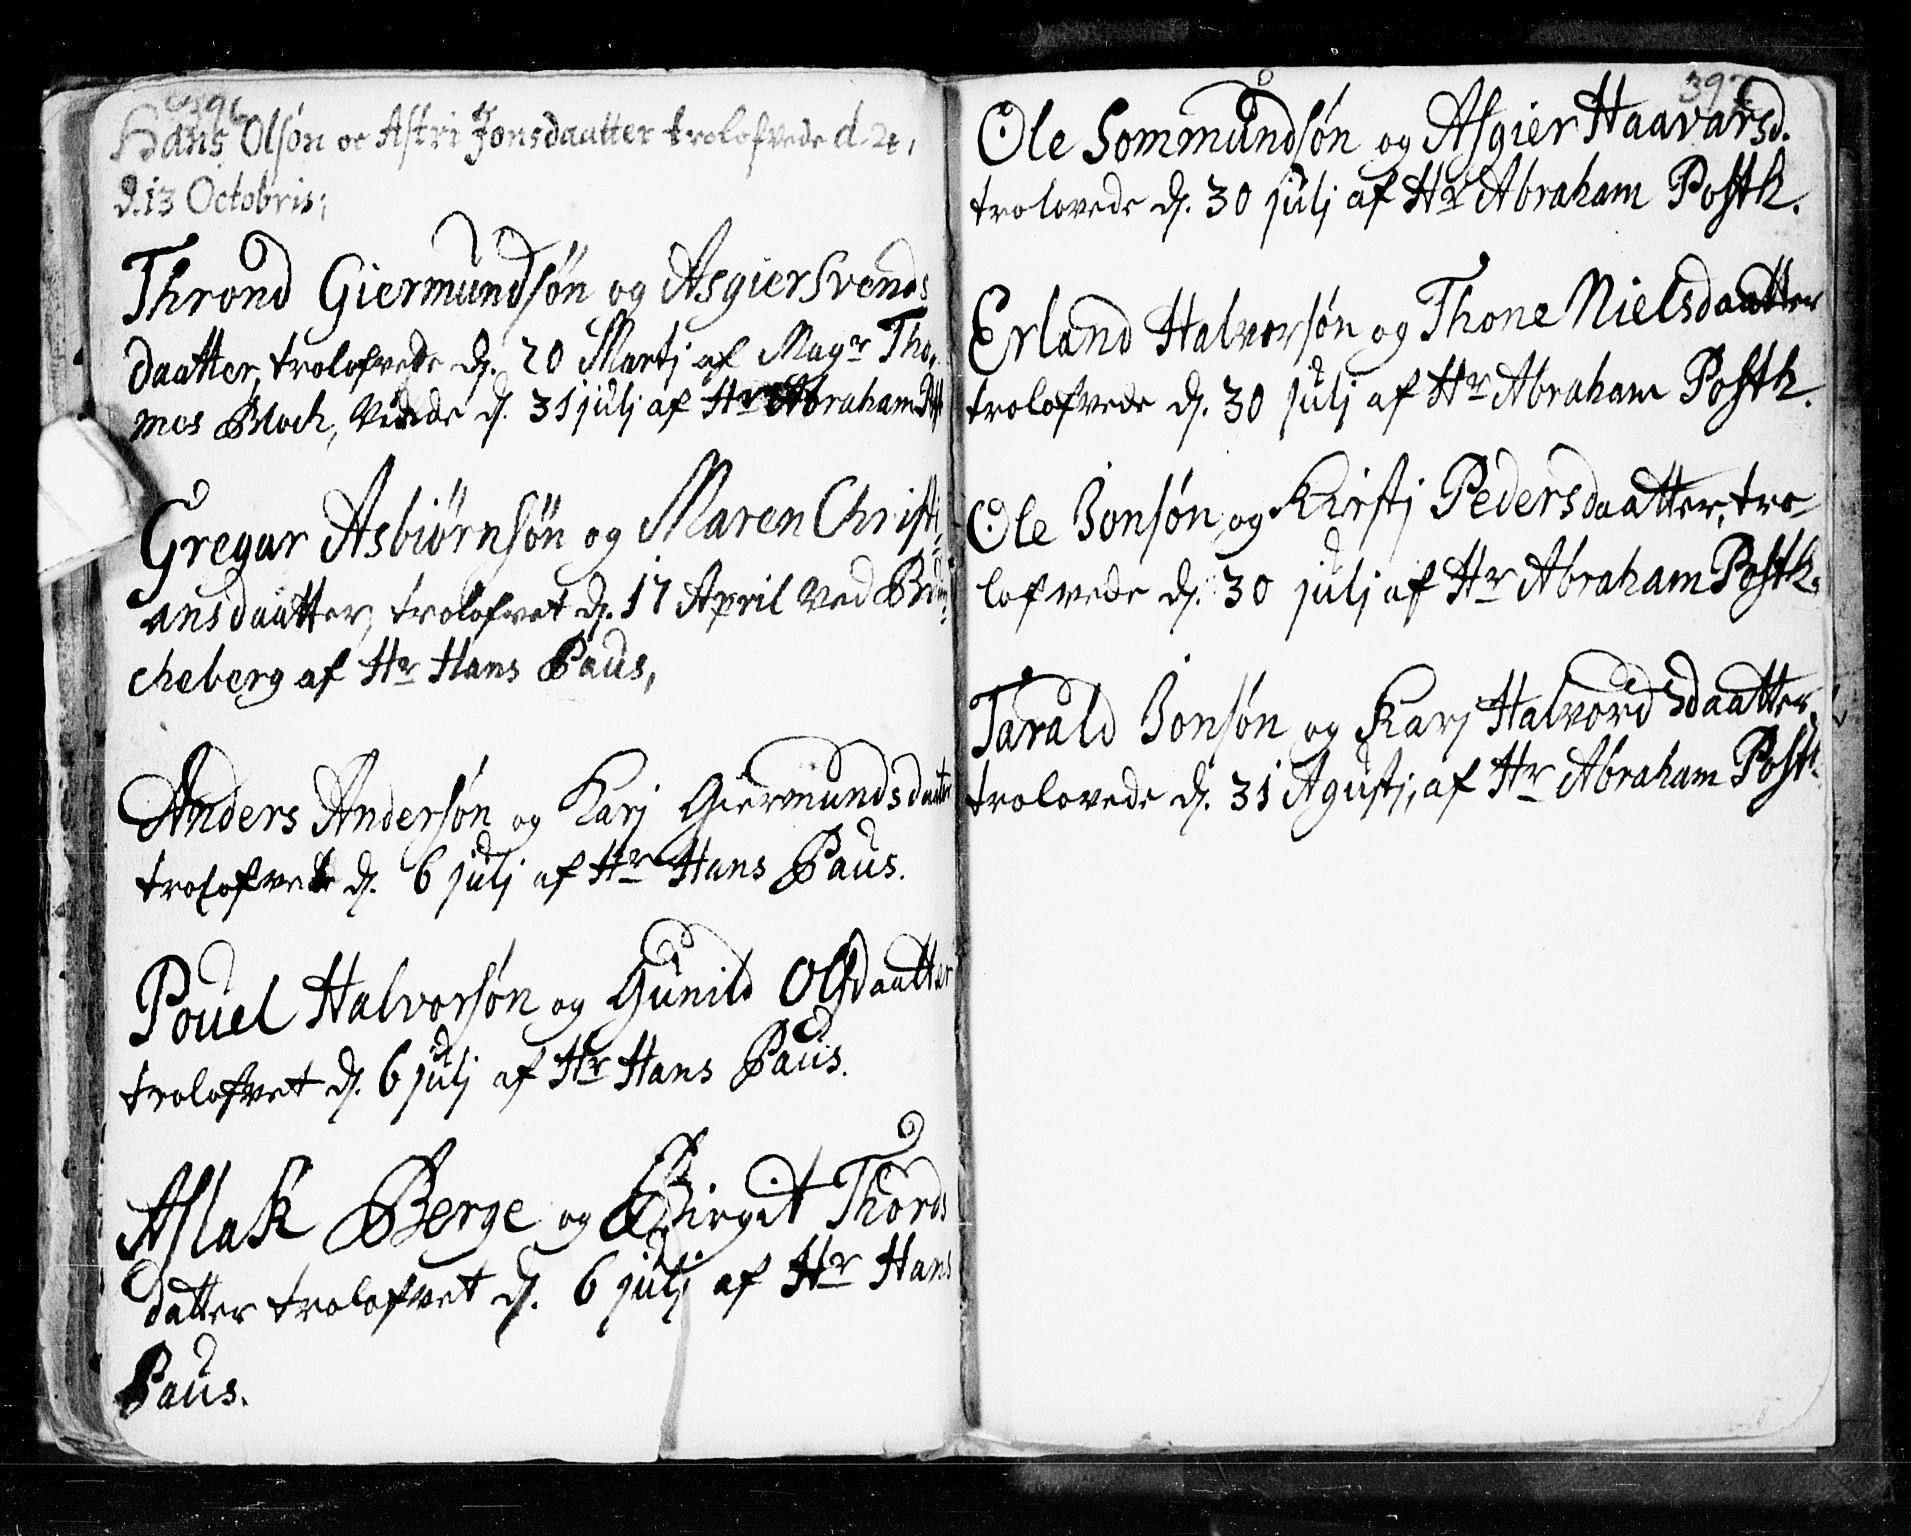 396
Hans Olsøn oc Astri Jonsdaatter trolofvede d. 24,
d. 13 Octobris;
Thrond Giermundsøn og Asgier Svends
daatter, trolofvede dj. 20 Martj af Magr Tho,
mes Bloch, Viede dj. 31 julj af Hr Abraham
Gregar Asbiørnsøn og Maren Christi,
ansdaatter, trolofvet dj. 17 April ved
cheberg af Hr Hans Paus,
Anders Andersøn og Karj Giermundsdaatter
trolofvede dj. 6 julj af Hr Hans Paus.
Pouel Halvorsøn og Gunild Olsdaatter
trolofvet dj. 6 julj af Hr Hans Paus.
Aslak Berge og Birgit Thords
datter trolofvet dj. 6 julj af Hr Hans
Paus.
397
Ole Sommundsøn og Asgier Haavarsd.
trolovede dj. 30 julj af Hr Abraham Posth.
Erland Halvorsøn og Thone Nielsdaatter
trolofvede dj. 30 julj af Hr Abraham Posth.
Ole Jonsøn og Kirstj Pedersdaatter, tro
lofvede dj. 30 julj af Hr Abraham Posth.
Tarald Jonsøn og Karj Halvordsdaatter,
trolovede dj. 31 Agustj, af Hr Abraham Posth.